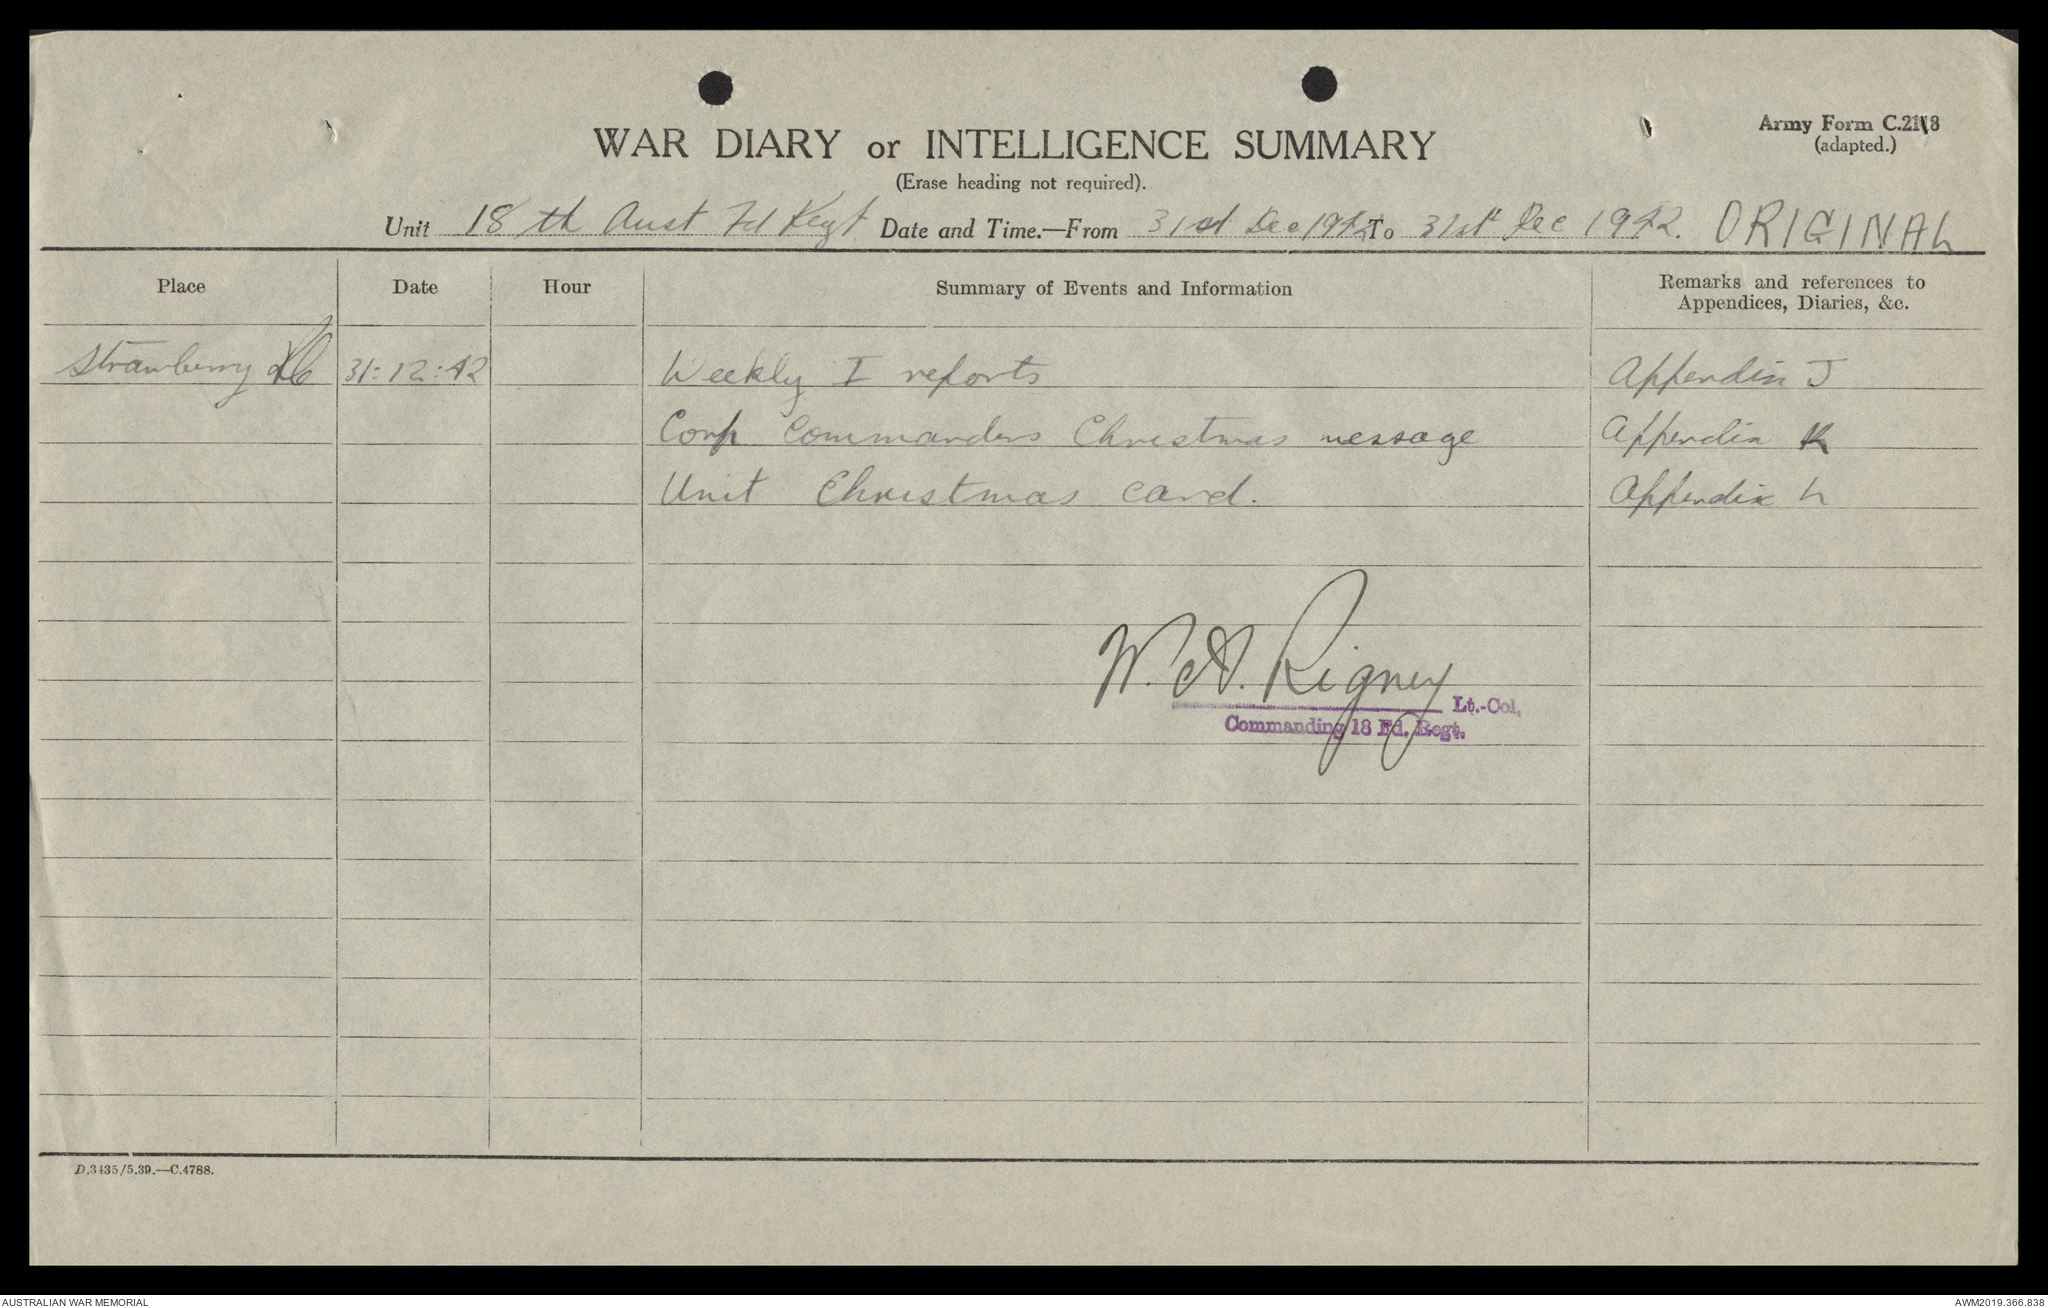 Army Form C.2118
(adapted.)
WAR DIARY or INTELLIGENCE SUMMARY
(Erase heading not required).
Unit 18th Aust Fd Regt Date and Time.—From 31st Dec 1942 To 31st Dec 1942. ORIGINAL
Place Date Hour Summary of Events and Information Remarks and references to
Appendices, Diaries, &c.
Strawberry 31:12:42 Weekly I reports Appendix J
Corp Commanders Christmas message Appendix K
Unit Christmas card. Appendix L
W. A. Rigney
Lt.-Col.
Commanding 18 Fd. Regt.
D.3435/5.39.—C.4788.
AUSTRALIAN WAR MEMORIAL AWM2019.366.838